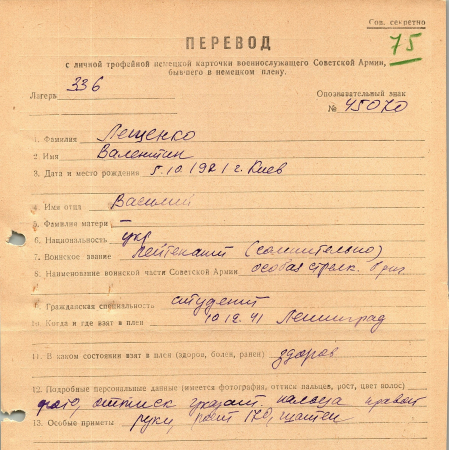 Сов. секретно
75
ПЕРЕВОД
с личной трофейной немецкой карточки военнослужащего Советской Армии,
бывшего в немецком плену.
Лагерь 336
Опознавательный знак
№ 45070
1. Фамилия Лещенко
2. Имя Валентин
3. Дата и место рождения 5.10.1921 г. Киев
4. Имя отца Василий
5. Фамилия матери —
6. Национальность укр
7. Воинское звание лейтенант (сомнительно)
8. Наименование воинской части Советской Армии особая стрелк. бриг
9. Гражданская специальность студент
10. Когда и где взят в плен 10.12.41 Ленинград
11. В каком состоянии взят в плен (здоров, болен, ранен) здоров
12. Подробные персональные данные (имеется фотография, оттиски пальцев, рост, цвет волос)
фото, оттиск указат. пальца правой
13. Особые приметы руки, рост 170,